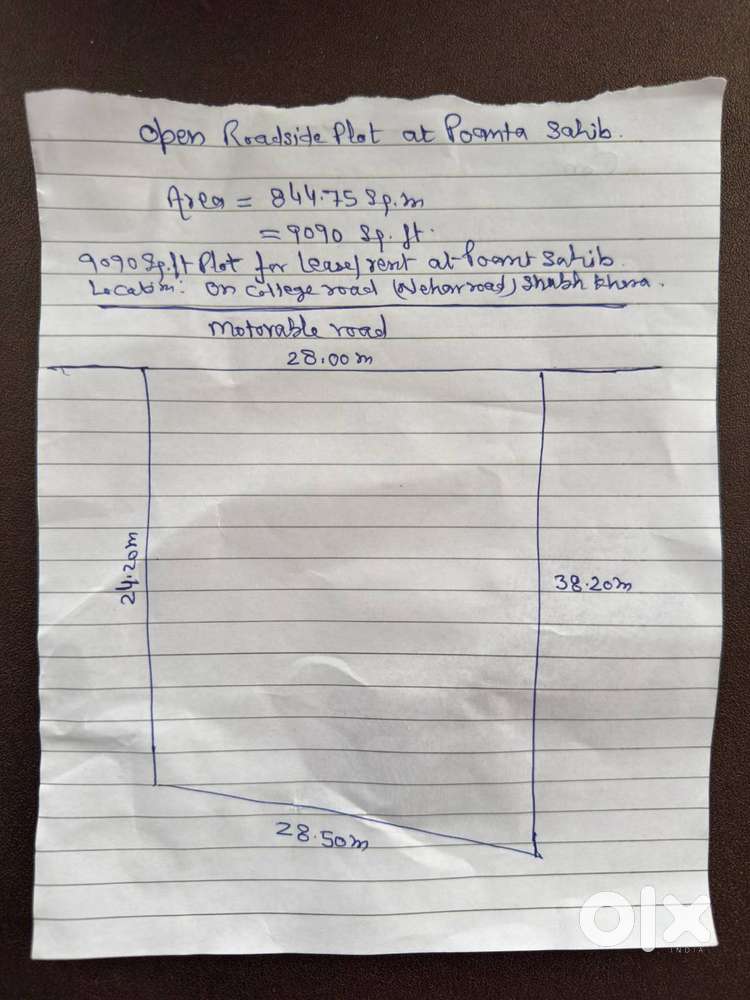 Open Roadside Plot at Poamta Sahib.
Area = 844.75 Sq.m
= 9090 Sq. ft.
9090 Sq.ft Plot for Lease/rent at Poamt Sahib
Location: On College road (Nehar road) Shubh khera.
Motorable road
28.00m
24.20m
38.20m
28.50m
olx
INDIA